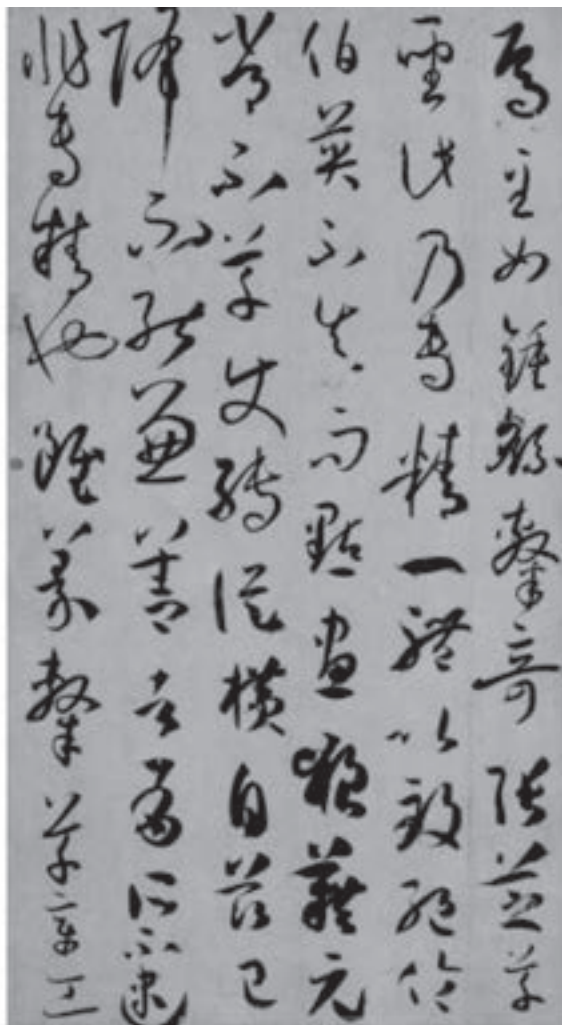 焉至如鍾繇隸奇張芝草
聖此乃專精一體以致絕倫
伯英不真而點畫狼藉元
常不草使轉縱橫自茲已
降不能兼善者有所不逮
非專精也雖篆隸草章工